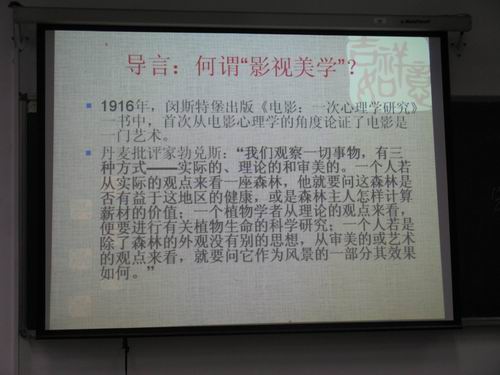 导言：何谓“影视美学”？
吉祥如意
1916年，闵斯特堡出版《电影：一次心理学研究》
一书中，首次从电影心理学的角度论证了电影是
一门艺术。
丹麦批评家勃兑斯：“我们观察一切事物，有三
种方式——实际的、理论的和审美的。一个人若
从实际的观点来看一座森林，他就要问这森林是
否有益于这地区的健康，或是森林主人怎样计算
薪材的价值；一个植物学者从理论的观点来看，
便要进行有关植物生命的科学研究；一个人若是
除了森林的外观没有别的思想，从审美的或艺术
的观点来看，就要问它作为风景的一部分其效果
如何。”